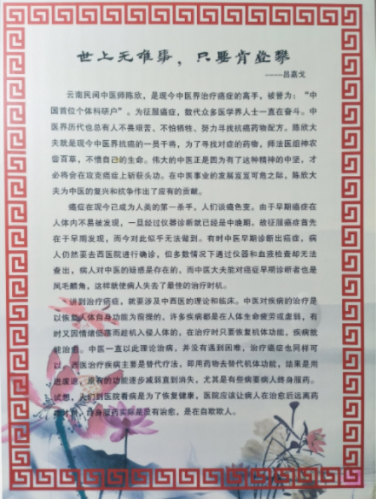 世上无难事，只要肯登攀
----吕嘉戈
云南民间中医师陈欣，是现今中医界治疗癌症的高手，被誉为：“中
国首位个体科研户”。为征服癌症，数代众多医学界人士一直在奋斗。中
医界历代也总有人不畏艰苦、不怕牺牲、努力寻找抗癌药物配方。陈欣大
夫就是现今中医界抗癌的一员干将，为了寻找对症的药物，师法医祖神农
尝百草，不惜自己的生命。伟大的中医正是因为有了这种精神的中坚，才
必将会在攻克癌症上斩获头功。在中医事业的发展岌岌可危之际，陈欣大
夫为中医的复兴和抗争作出了应有的贡献。
癌症在现今已成为人类的第一杀手，人们谈癌色变。由于早期癌症在
人体内不易被发现，一旦经过仪器诊断就已经是中晚期，故征服癌症首先
在于早期发现，而今对此似乎无法做到。有时中医早期诊断出癌症，病
人仍然要去西医院进行确诊，但多数情况下通过仪器和血液检查却无法
查出，病人对中医的疑惑是存在的，而中医大夫能对癌症早期诊断者也是
凤毛麟角，这样就使病人失去了最佳的治疗时机。
讲到治疗癌症，就要涉及中西医的理论和临床。中医对疾病的治疗是
以恢复人体自身功能为指惯的，许多疾病都是在人体生命疲劳或虚弱，有
时又因情绪而乘机侵入人体的，在治疗时只要恢复机体功能，疾病就
能治愈。中医一直以此理论治病，并没有遇到困难，治疗癌症也同样可
以。西医治疗疾病主要是替代疗法，即用药物去替代机体功能，结果是用
进废退，原有的功能逐步减弱直到消失，尤其是有些病要病人终身服药。
试想，人们到医院看病是为了恢复健康，医院应该让病人在治愈后远离药
终身服药实际是没有治愈，是在自欺欺人。